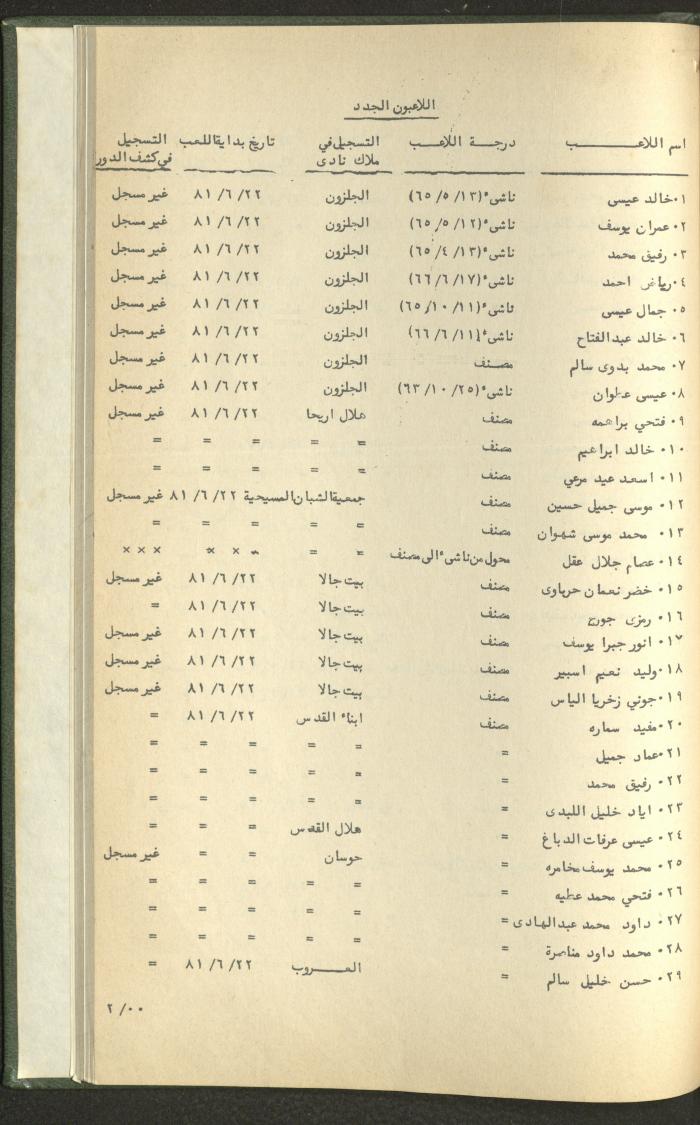 اللاعبون الجدد
اسم اللاعب درجة اللاعب التسجيل في ملاك نادى تاريخ بداية اللعب التسجيل في كشف الدور
٠١ خالد عيسى ناشىء (١٣/ ٥/ ٦٥) الجلزون ٢٢/ ٦/ ٨١ غير مسجل
٠٢ عمران يوسف ناشىء (١٢/ ٥/ ٦٥) الجلزون ٢٢/ ٦/ ٨١ غير مسجل
٠٣ رفيق محمد ناشىء (١٣/ ٤/ ٦٥) الجلزون ٢٢/ ٦/ ٨١ غير مسجل
٠٤ رياض احمد ناشىء (١٧/ ٦/ ٦٦) الجلزون ٢٢/ ٦/ ٨١ غير مسجل
٠٥ جمال عيسى ناشىء (١١/ ١٠/ ٦٥) الجلزون ٢٢/ ٦/ ٨١ غير مسجل
٠٦ خالد عبدالفتاح ناشىء (١١/ ٦/ ٦٦) الجلزون ٢٢/ ٦/ ٨١ غير مسجل
٠٧ محمد بدوى سالم مصنف الجلزون ٢٢/ ٦/ ٨١ غير مسجل
٠٨ عيسى عطوان ناشىء (٢٥/ ١٠/ ٦٣) الجلزون ٢٢/ ٦/ ٨١ غير مسجل
٠٩ فتحي براهمه مصنف هلال اريحا ٢٢/ ٦/ ٨١ غير مسجل
٠١٠ خالد ابراهيم مصنف = = = = =
٠١١ اسعد عيد مرعي مصنف = = = = =
٠١٢ موسى جميل حسين مصنف جمعية الشبان المسيحية ٢٢/ ٦/ ٨١ غير مسجل
٠١٣ محمد موسى شهوان مصنف = = = = =
٠١٤ عصام جلال عقل محول من ناشىء الى مصنف = = × × × × × ×
٠١٥ خضر نعمان حرباوى مصنف بيت جالا ٢٢/ ٦/ ٨١ غير مسجل
٠١٦ رمزى جورج مصنف بيت جالا ٢٢/ ٦/ ٨١ =
٠١٧ انور جبرا يوسف مصنف بيت جالا ٢٢/ ٦/ ٨١ غير مسجل
٠١٨ وليد نعيم اسبير مصنف بيت جالا ٢٢/ ٦/ ٨١ غير مسجل
٠١٩ جوني زخريا الياس مصنف بيت جالا ٢٢/ ٦/ ٨١ غير مسجل
٠٢٠ مفيد سماره مصنف ابناء القدس ٢٢/ ٦/ ٨١ =
٠٢١ عماد جميل = = = = = =
٠٢٢ رفيق محمد = = = = = =
٠٢٣ اياد خليل اللبدى = = = = = =
٠٢٤ عيسى عرفات الدباغ = هلال القدس = = =
٠٢٥ محمد يوسف مخامره = حوسان = = غير مسجل
٠٢٦ فتحي محمد عطيه = = = = = =
٠٢٧ داود محمد عبدالهادى = = = = = =
٠٢٨ محمد داود مناصرة = = = = = =
٠٢٩ حسن خليل سالم = العروب ٢٢/ ٦/ ٨١ =
٠٠/ ٢